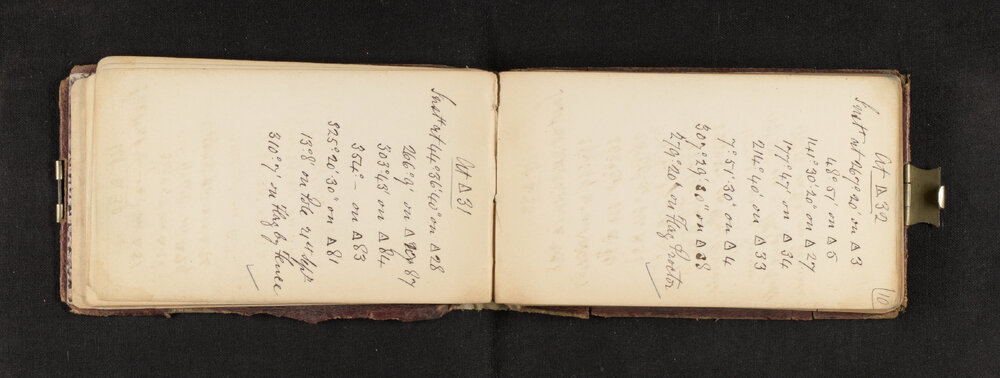 10
At Δ 32
Instt at 269°20' on Δ 3
48°51' on Δ 5
141°30'20" on Δ 27
177°47' on Δ 34
214°40' on Δ 33
7°51'30" on Δ 4
309°29'30" on Δ 28
279°20' on Flag Proctor
At Δ 31
Instt at 44°36'40" on Δ 28
266°9' on Δ 87
303°43' on Δ 84
354°– on Δ 83
325°26'30" on Δ 81
13°8' on Pole 21st Sept
310°9' on Flag by Fence